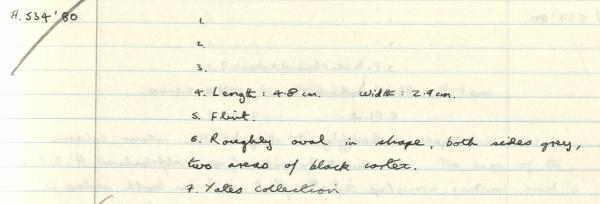 A.534'80
1.
2.
3.
4. Length: 4.8 cm. Width: 2.9 cm.
5. Flint.
6. Roughly oval in shape, both sides grey,
two areas of black cortex.
7. Yates collection